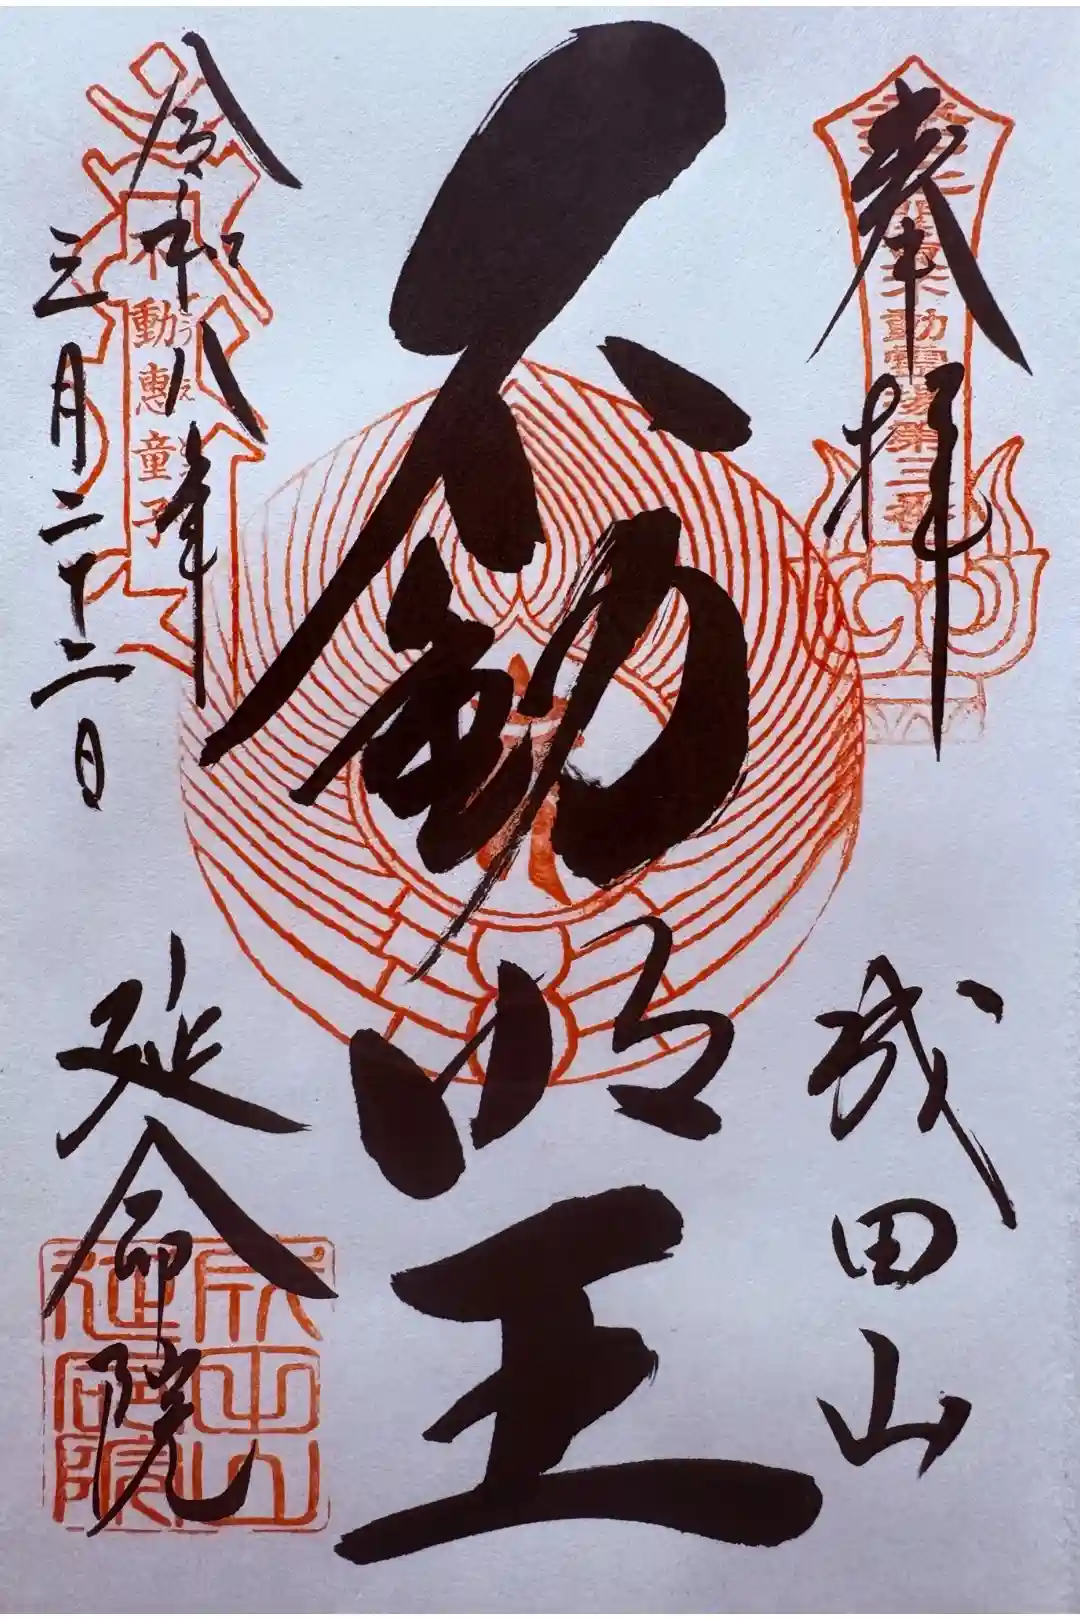 奉拝
不動霊場第三番
成田山
不動明王
令和八年
三月二十二日
不動惠童子
延命院
成田山
延命院